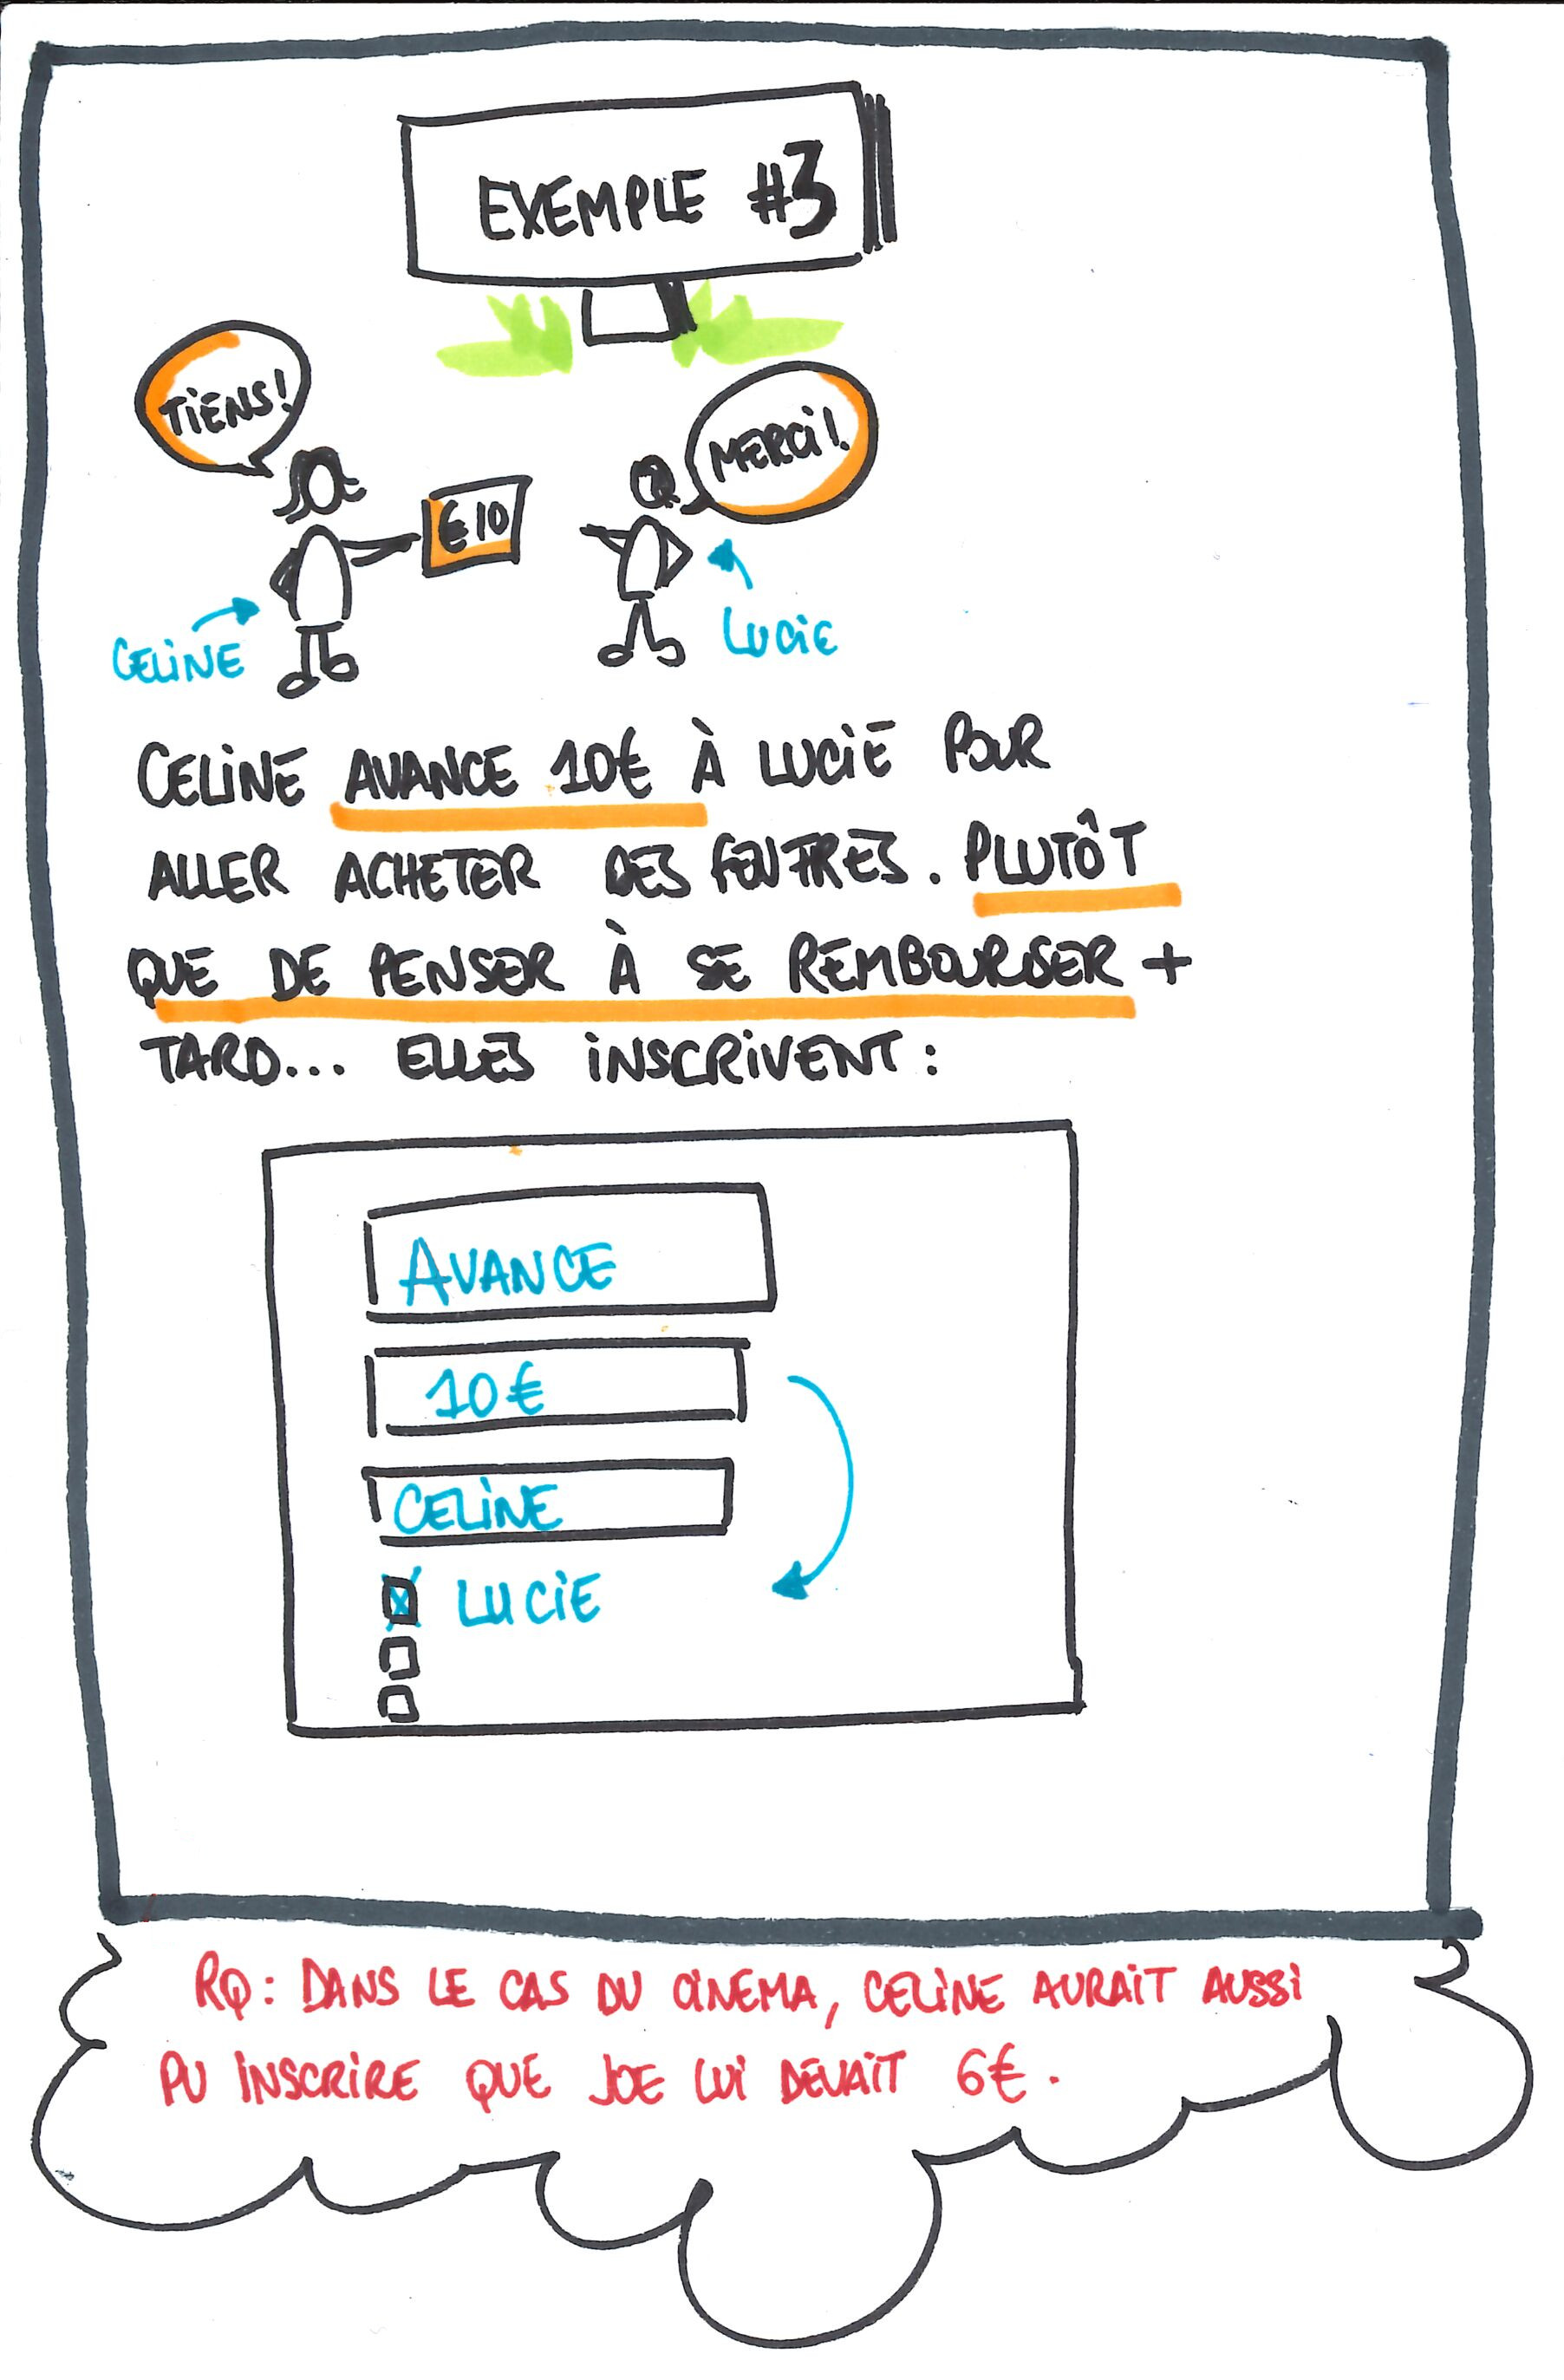 EXEMPLE #3
TIENS!
MERCI!
€10
CELINE
LUCIE
CELINE AVANCE 10€ À LUCIE POUR
ALLER ACHETER DES FEUTRES. PLUTÔT
QUE DE PENSER À SE REMBOURSER +
TARD... ELLES INSCRIVENT :
AVANCE
10€
CELINE
LUCIE
RQ : DANS LE CAS DU CINEMA, CELINE AURAIT AUSSI
PU INSCRIRE QUE JOE LUI DEVAIT 6€.